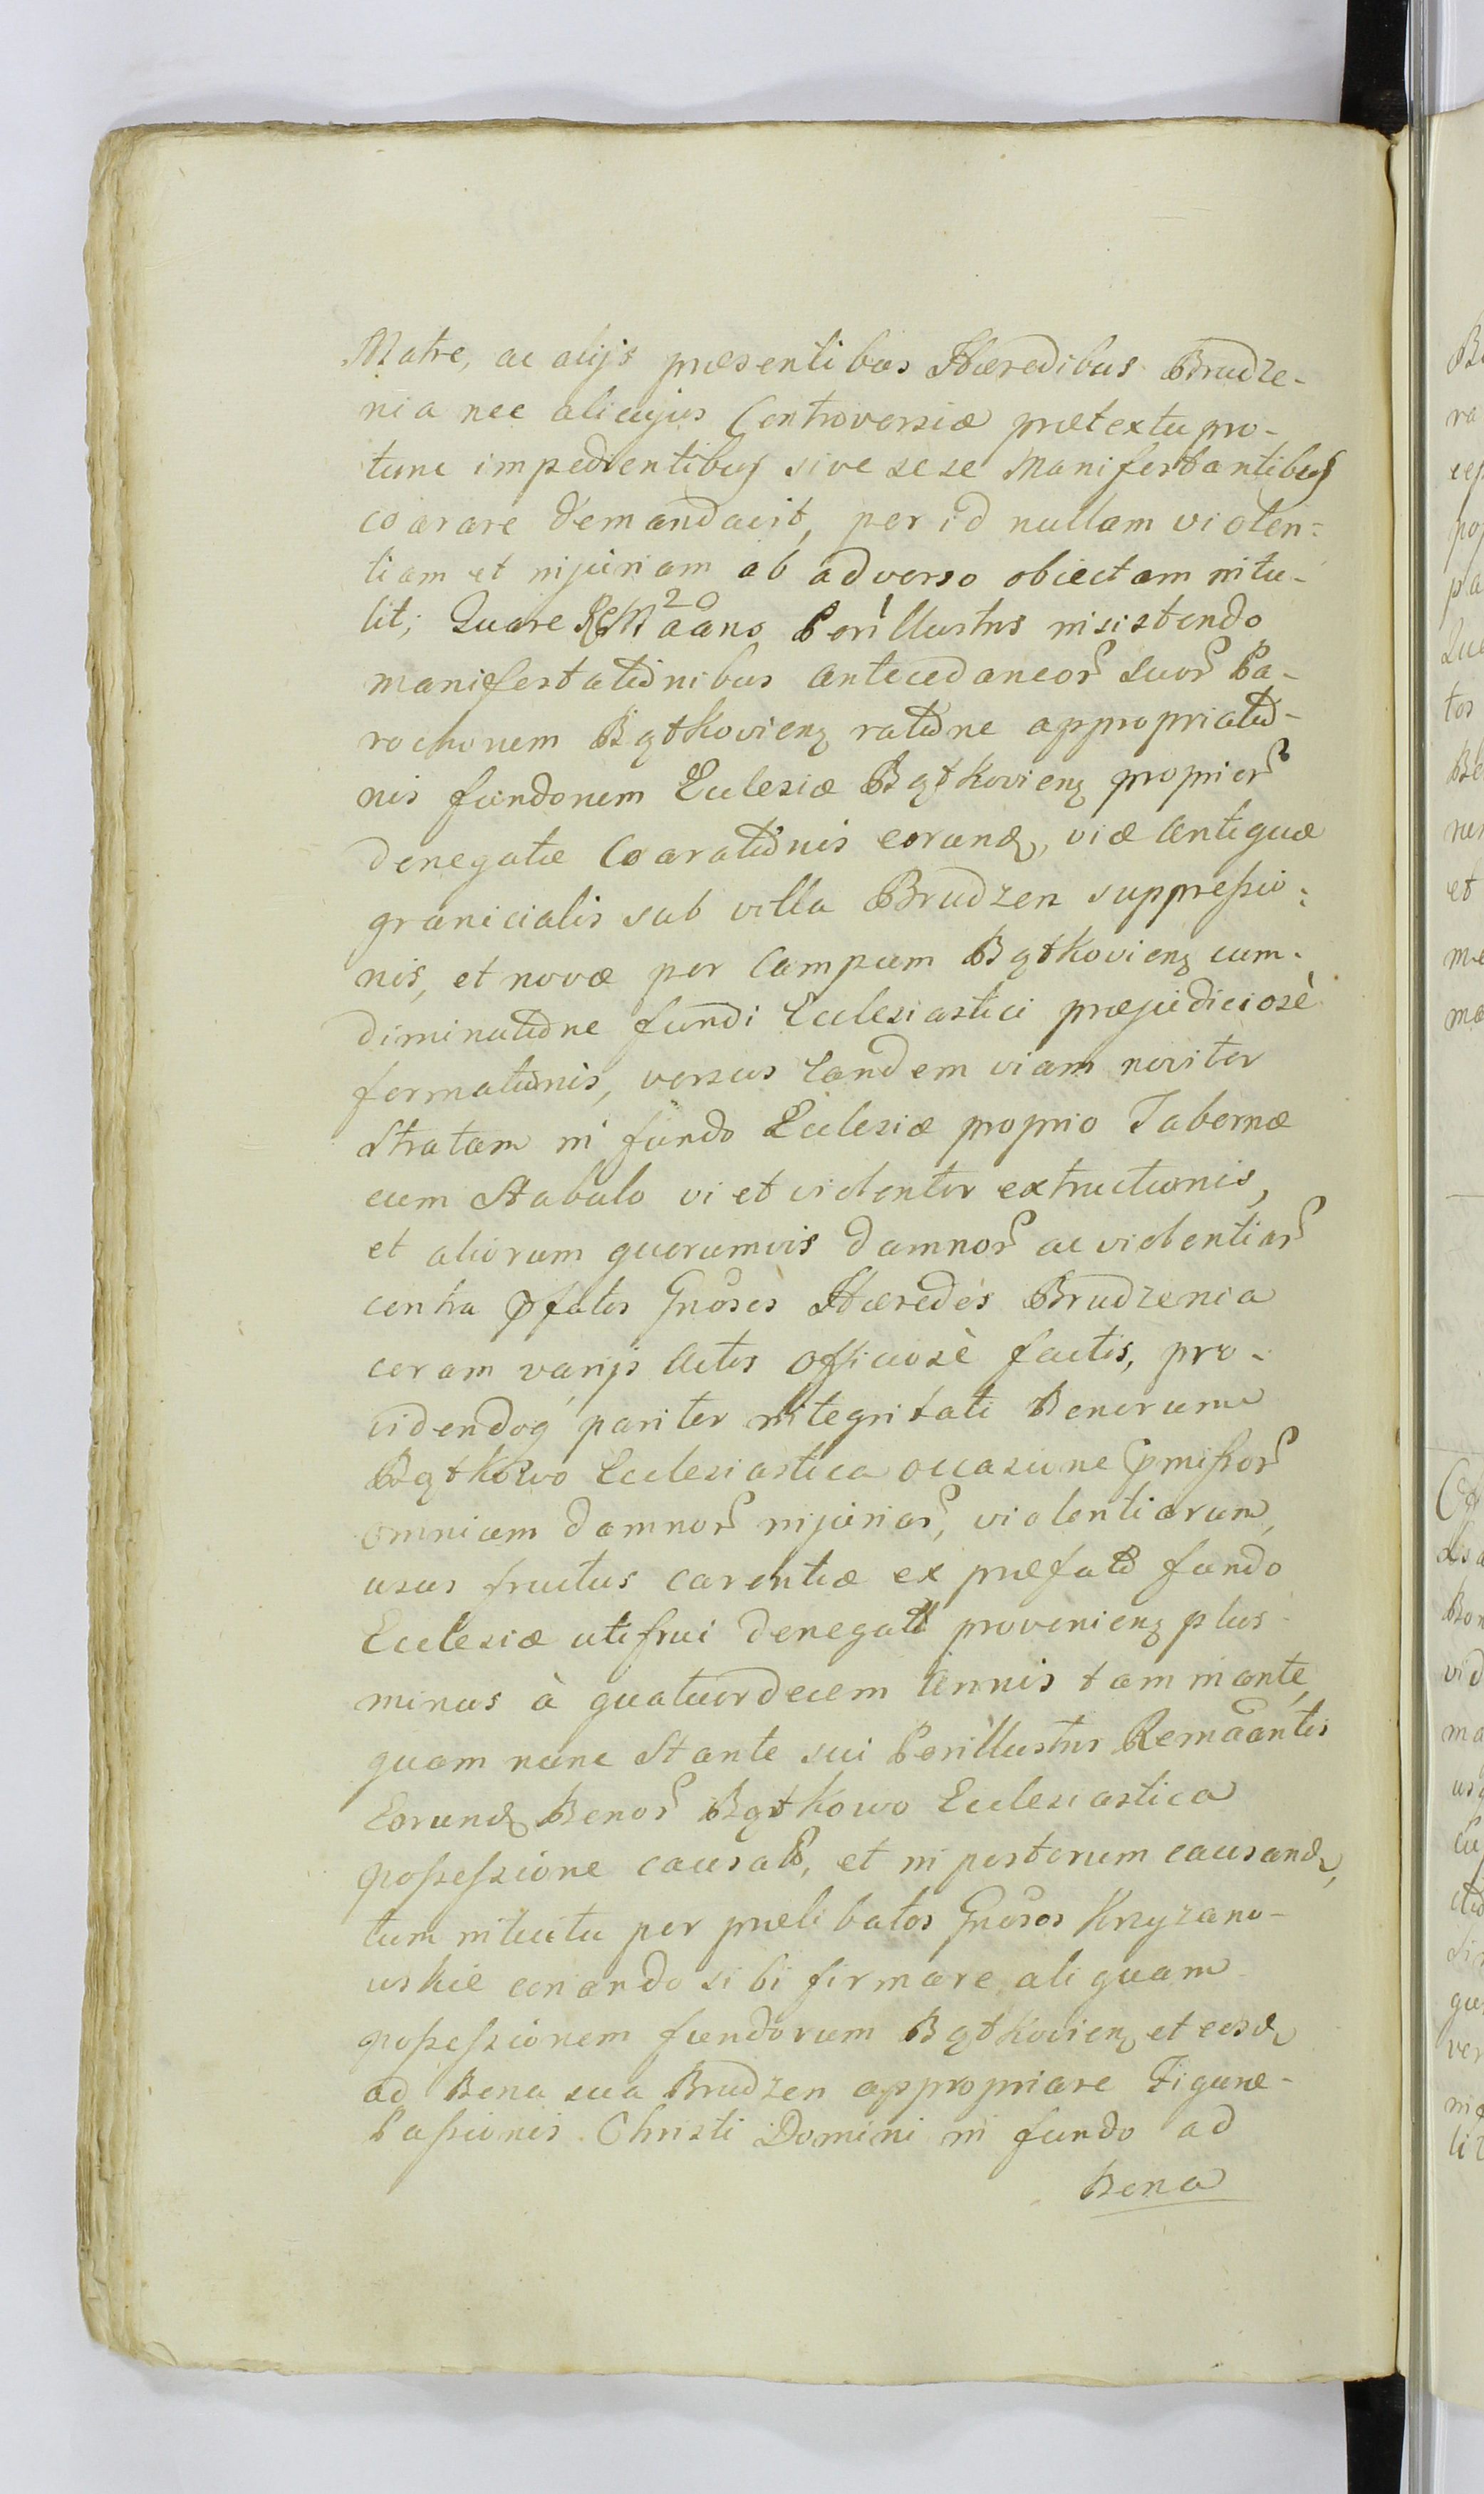 Matre, ac alijs præsentibus Hæredibus Brudze-
nia nec alicujus Controversiæ prætextu pro-
tunc impedientibus sive sese Manifestantibus
coarare demandavit, per id nullam violen-
tiam et injuriam ab adverso obiectam intu-
lit; Quare Perillustris insistendo
manifestationibus antecedaneor suor Pa-
rochonem Bątkovienz ratione appropriatio-
nis fundonem Ecclesiæ Bątkovienz proprior
denegatæ Coarationis eorund, viæ antiquæ
granicialis sub villa Brudzen suppressio-
nis, et novæ per Campum Bątkovienz cum-
diminutione fundi Ecclesiastici præjudiciosè
formationis, versus tandem viam noviter
Stratam in fundo Ecclesiæ proprio Tabernæ
cum Stabulo vi et violenter extructionis,
et aliorum quorumvis damnor ac violentiar
contra pfatos Gnosos Hæredes Brudzenia
coram varijs Actis officiosè factis, pro-
videndoq pariter integritati Bonorum
Bątkowo Ecclesiastica occasione pmissor
omnium damnor injuriar, violentiarum,
usus fructus carentiæ ex præfato fundo
Ecclesiæ utifrui denegati provenienz plus
minus à quatuordecem annis tam inante,
quam nunc Stante sui Perillustris Remaantis
Eorund Bonor Bątkowo Ecclesiastica
possessione causat, et in posterum causand,
tum intuitu per prælibatos Gnosos Krzyzano-
wskie conando sibi firmare aliquam
possessionem fundorum Bątkovienz et eosd
ad Bona sua Brudzen appropriare Figuræ-
Passionis Christi Domini in fundo ad
Bona